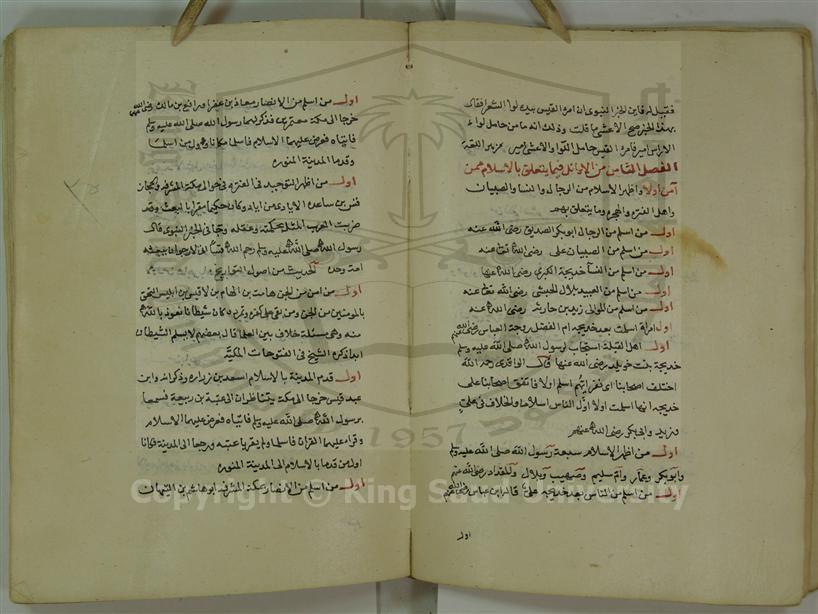 فقيل له فاين الخبر النبوى ان امرء القيس بيده لوا الشعر فقال
بهذا الخبر صح الاعشى ما قلت وذلك انه ما من حامل لواء
الا راس امير فامرء القيس حامل اللوا والاعشى امير
الفصل الثامن من الاوائل فيما يتعلق بالاسلام ممن
آمن اولا واظهر الاسلام من الرجال والنسا والصبيان
واهل الفتره والهجره وما يتعلق بهم
اول من اسلم من الرجال ابو بكر الصديق رضى الله عنه
اول من اسلم من الصبيان على رضى الله تعالى عنه
اول من اسلم من النسآ خديجة الكبرى رضى الله عنها
اول من اسلم من العبيد بلال الحبشى رضى الله تعالى عنه
اول من اسلم من الموالى زيد بن حارثه رضى الله عنه
اول امراة اسلمت بعد خديجه ام الفضل زوجة العباس رضى الله عنهم
اول اهل القبلة استجاب لرسول الله صلى الله عليه وسلم
خديجة بنت خويلد رضى الله عنها قال الواقدى رحمه الله
اختلف اصحابنا اى نفر ايهم اسلم اولا فاتفق اصحابنا على
خديجه انها اسلمت اولا اول الناس اسلاما والخلاف فى على
وزيد وابى بكر رضى الله عنهم
اول من اظهر الاسلام سبعة رسول الله صلى الله عليه وسلم
وابو بكر وعمار وام سليم وصهيب وبلال والمقداد رضى الله عنهم
اول من اسلم من الناس بعد خديجه على قاله ابن عباس رضى الله عنهم
اول
اول من اسلم من الانصار معاذ بن عفرا ورافع بن مالك رضى الله
خرجا الى مكة معتمرين فذكر لهما رسول الله صلى الله عليه وسلم
فاتياه فعرض عليهما الاسلام فاسلما فكانا اول من اسلما
وقدما المدينة المنوره
اول من اظهر التوحيد فى الفتره فى حوالى مكة المشرفه وكان
قس بن ساعده الايادى من اياد وكان حكيما مقرا بالبعث وقد
ضربت العرب المثل بحكمته وعقله وجا فى الخبر النبوى قال
رسول الله صلى الله عليه وسلم رحم الله قسا انى لارجوا ان يبعثه
امة وحده الحديث من اصول التواريخ
اول من امن من الجن هامت بن الهام بن لاقيس بن ابليس التحق
بالمومنين من الجن ومن بقى على كفره وتمرده كان شيطانا نعوذ بالله
منه وهى مسئلة خلاف بين العلما قال بعضهم لا يسلم الشيطان
ابدا ذكره الشيخ فى الفتوحات المكية
اول قدم المدينة بالاسلام اسعد بن زراره وذكوان وابن
عبد قيس خرجا الى مكة يتناظران الى عتبة بن ربيعة فسمعا
برسول الله صلى الله عليه وسلم فاتياه فعرض عليهما الاسلام
وقراء عليهما القران فاسلما ولم يقربا عتبه ورجعا الى المدينة فكانا
اول من قدما بالاسلام الى المدينة المنوره
اول من اسلم من الانصار بمكة المشرفه ابو هاشم بن التيهان
1957
Copyright © King Saud University